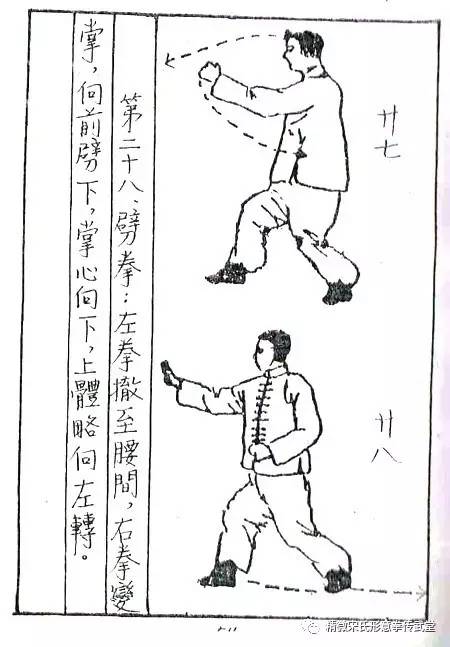 廿七
廿八
第二十八、劈拳：左拳撤至腰間，右拳變
掌，向前劈下，掌心向下，上體略向左轉。
精微宋氏形意拳传武堂